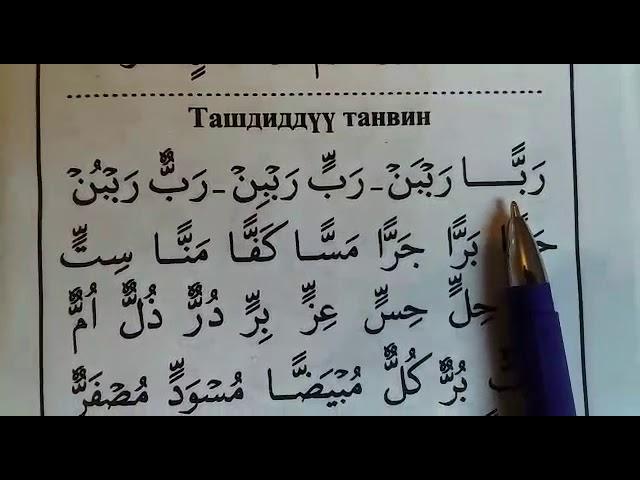 Ташдиддүү танвин
رَبًّـــا رَبْبَنْ ـ رَبٍّ رَبْبِنْ ـ رَبٌّ رَبْبُنْ
بَرًّا جَرًّا مَسًّا كَفًّا مَنًّا سِتٍّ
حِلٍّ حِسٍّ عِزٍّ بِرٍّ دُرٌّ ذُلٌّ اُمٌّ
بُرٌّ كُلٌّ مُبْيَضًّـا مُسْوَدٍّ مُصْفَرٌّ